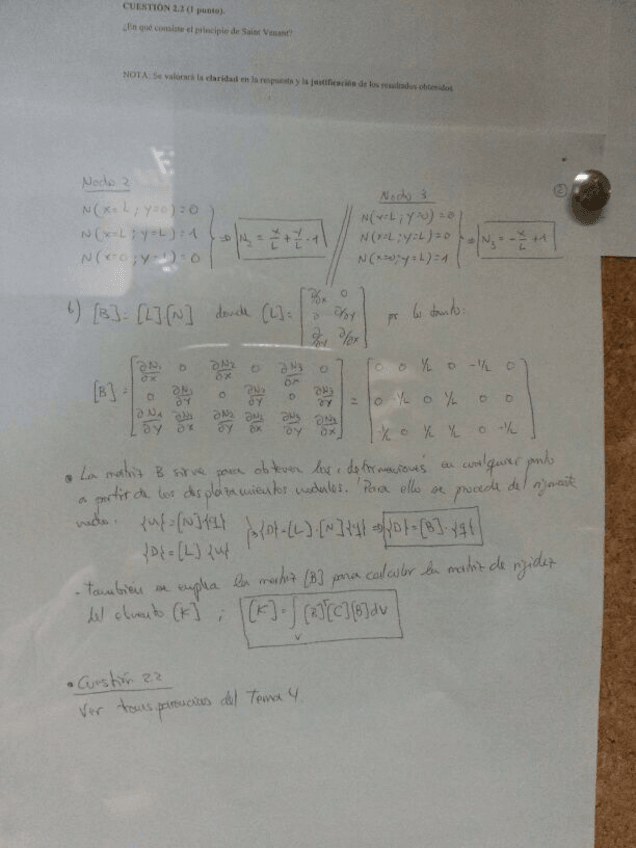 CUESTIÓN 2.2 (1 punto).
¿En qué consiste el principio de Saint Venant?
NOTA: Se valorará la claridad en la respuesta y la justificación de los resultados obtenidos
②
Nodo 2
N(x=L; y=0)=0
N(x=L; y=L)=1
N(x=0; y=L)=0
⇒ N₂ = x/L + y/L - 1
Nodo 3
N(x=L; y=0)=0
N(x=L; y=L)=0
N(x=0; y=L)=1
⇒ N₃ = -x/L + 1
b) [B]=[L]·[N] donde [L]= [∂/∂x 0; 0 ∂/∂y; ∂/∂y ∂/∂x] por lo tanto:
[B] = [∂N₁/∂x 0 ∂N₂/∂x 0 ∂N₃/∂x 0; 0 ∂N₁/∂y 0 ∂N₂/∂y 0 ∂N₃/∂y; ∂N₁/∂y ∂N₁/∂x ∂N₂/∂y ∂N₂/∂x ∂N₃/∂y ∂N₃/∂x] = [0 0 1/L 0 -1/L 0; 0 -1/L 0 1/L 0 0; -1/L 0 1/L 1/L 0 -1/L]
• La matriz B sirve para obtener las deformaciones en cualquier punto
a partir de los desplazamientos nodales. Para ello se procede del siguiente
modo. {u}=[N]{q}
{D}=[L]{u}
{D}=[L]·[N]{q} ⇒ {D}=[B]·{q}
- También se emplea la matriz [B] para calcular la matriz de rigidez
del elemento [K] ; [K]=∫ᵥ[B]ᵀ[C][B]dv
• Cuestión 2.2
Ver transparencias del Tema 4.